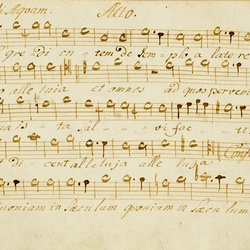 Aquam. Alto.
gre di en tem de tem plo a late re
alle luia et omnes ad quos perveni
is ta sal vi fac
di cent alleluja alle luja
quoniam in sæculum quoniam in sæcu lum